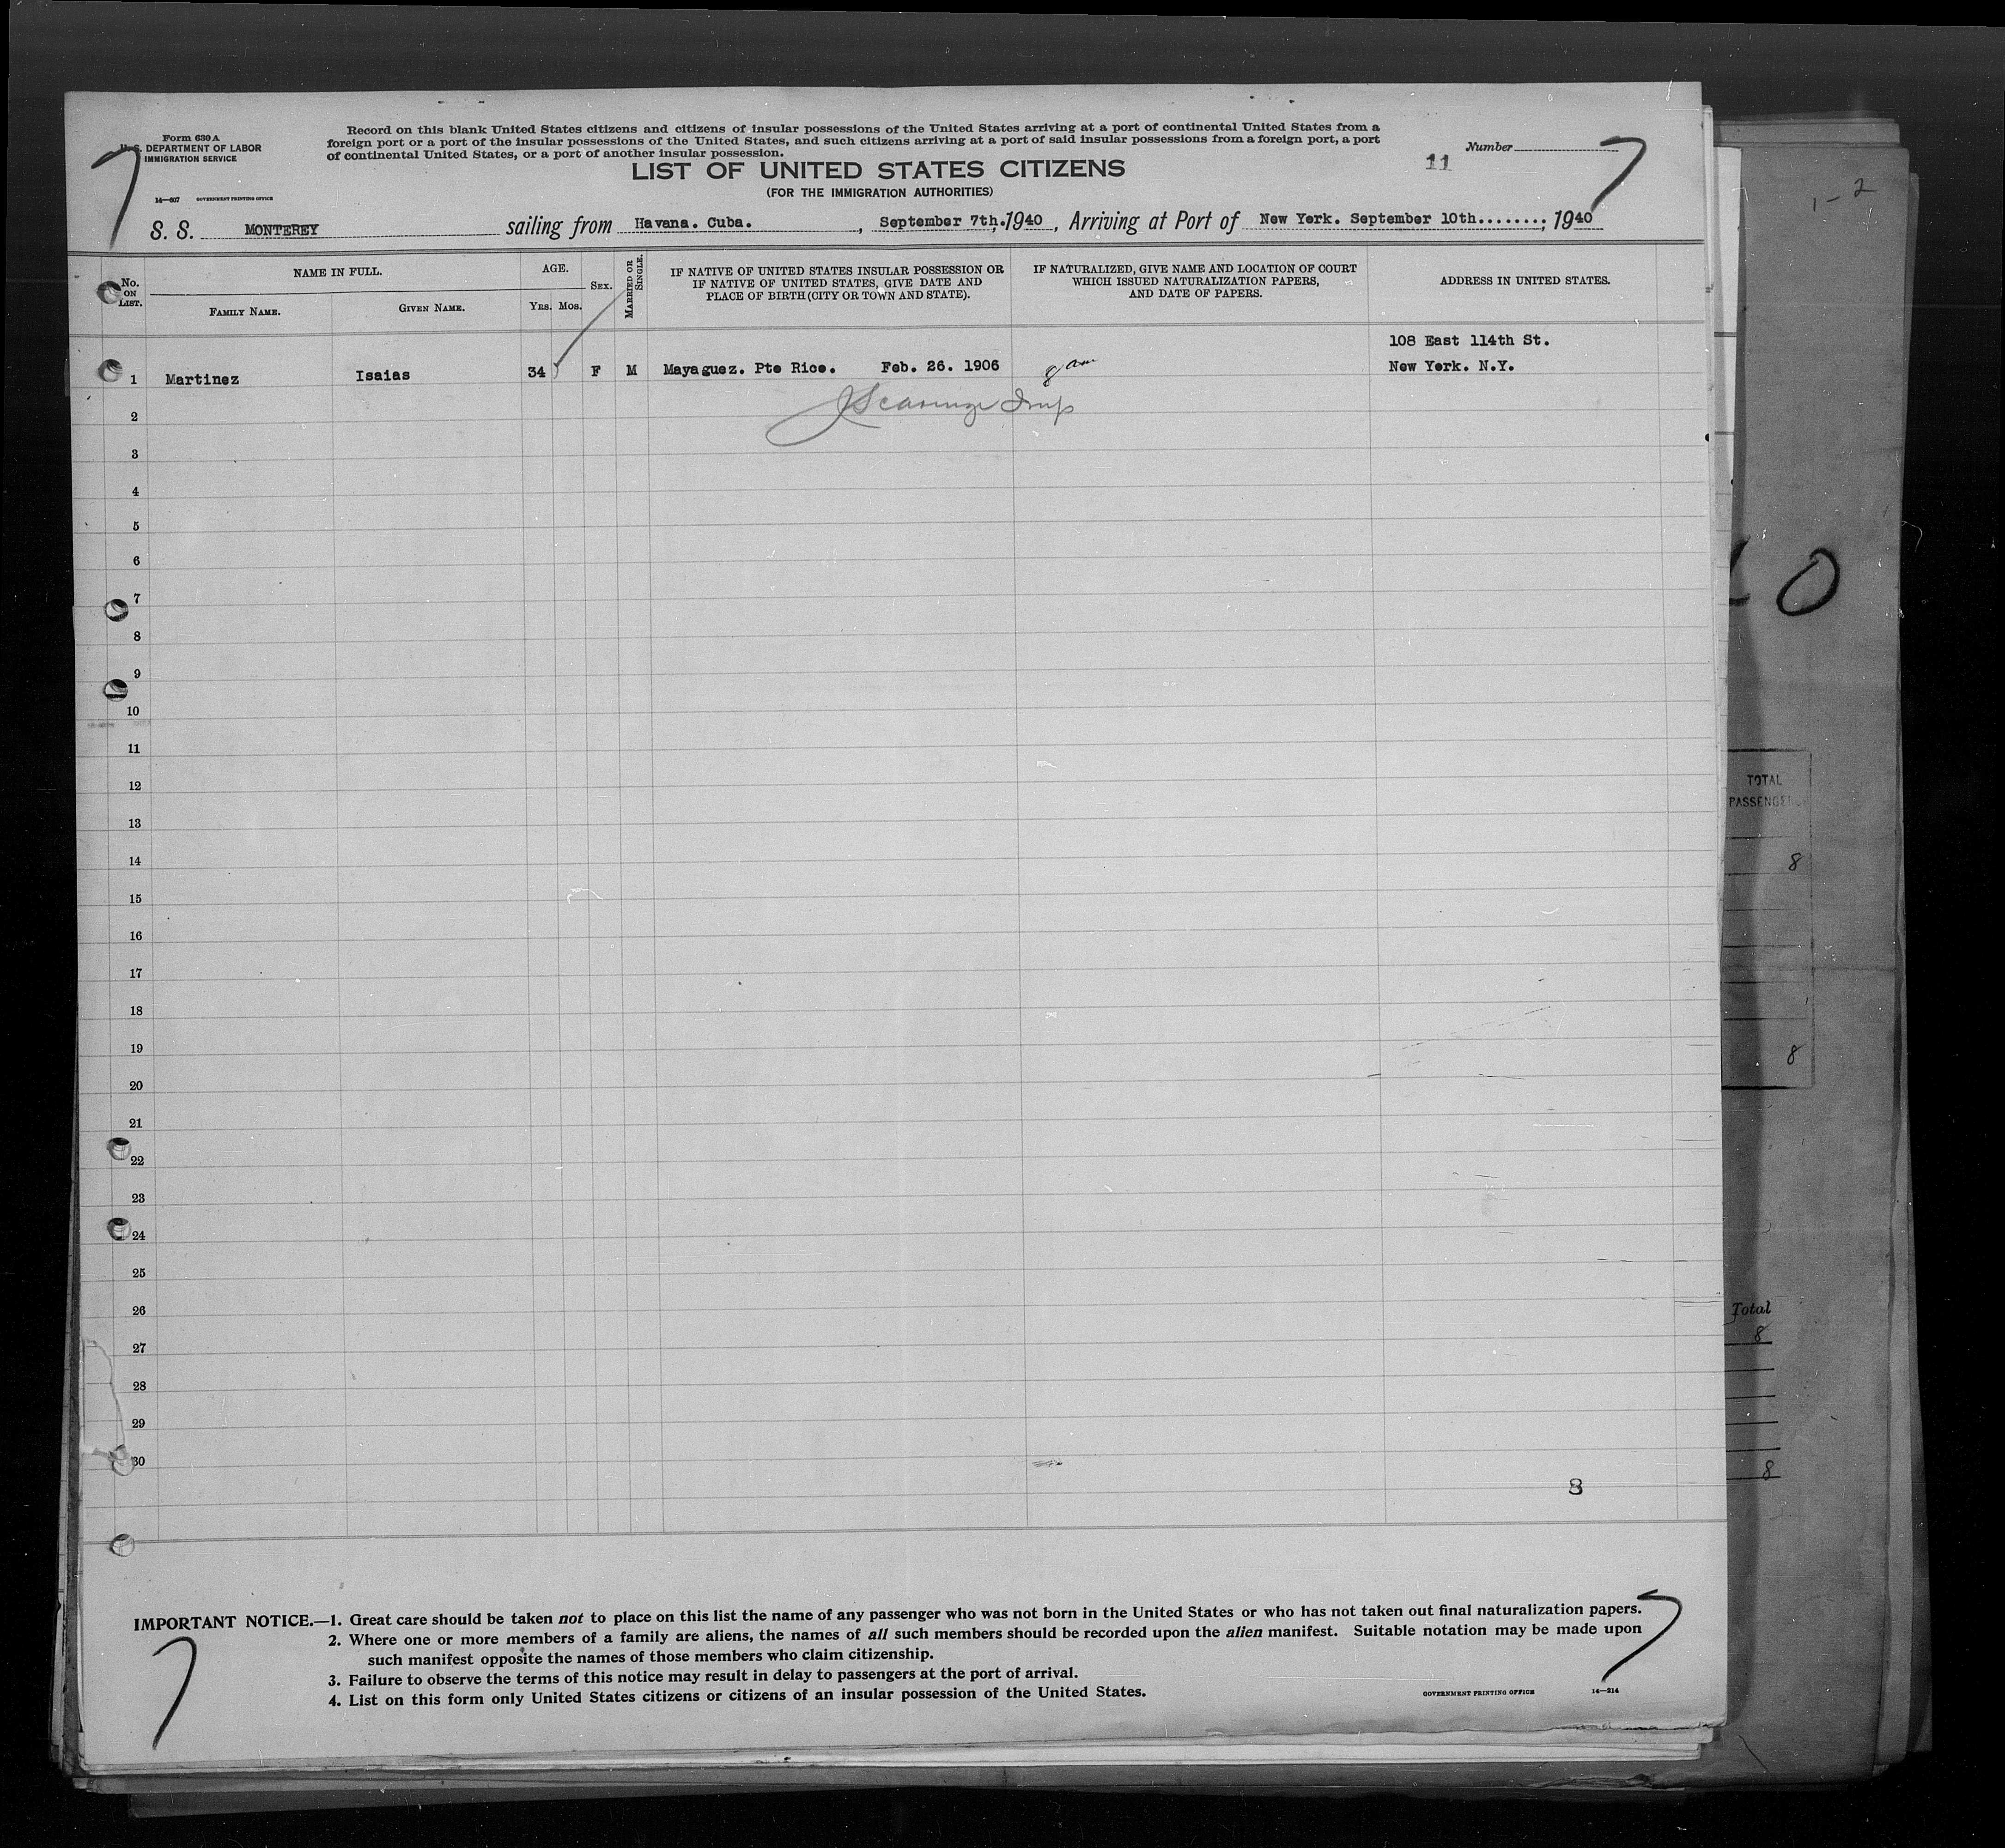 Form 630 A
U. S. DEPARTMENT OF LABOR
IMMIGRATION SERVICE
14—607 GOVERNMENT PRINTING OFFICE
Record on this blank United States citizens and citizens of insular possessions of the United States arriving at a port of continental United States from a
foreign port or a port of the insular possessions of the United States, and such citizens arriving at a port of said insular possessions from a foreign port, a port
of continental United States, or a port of another insular possession.
Number
11
7 7
LIST OF UNITED STATES CITIZENS
(FOR THE IMMIGRATION AUTHORITIES)
S. S. MONTEREY sailing from Havana. Cuba. , September 7th, 1940 , Arriving at Port of New York. September 10th........; 1940
No. ON LIST.
NAME IN FULL.
FAMILY NAME. GIVEN NAME.
AGE.
YRS. MOS.
SEX.
MARRIED OR SINGLE.
IF NATIVE OF UNITED STATES INSULAR POSSESSION OR
IF NATIVE OF UNITED STATES, GIVE DATE AND
PLACE OF BIRTH (CITY OR TOWN AND STATE).
IF NATURALIZED, GIVE NAME AND LOCATION OF COURT
WHICH ISSUED NATURALIZATION PAPERS,
AND DATE OF PAPERS.
ADDRESS IN UNITED STATES.
108 East 114th St.
1 Martinez Isaias 34 F M Mayaguez. Pto Rico. Feb. 26. 1906 8 am New York. N.Y.
2
3
4
5
6
7
8
9
10
11
12
13
14
15
16
17
18
19
20
21
22
23
24
25
26
27
28
29
30
8
IMPORTANT NOTICE.—1. Great care should be taken not to place on this list the name of any passenger who was not born in the United States or who has not taken out final naturalization papers.
2. Where one or more members of a family are aliens, the names of all such members should be recorded upon the alien manifest. Suitable notation may be made upon
such manifest opposite the names of those members who claim citizenship.
3. Failure to observe the terms of this notice may result in delay to passengers at the port of arrival.
4. List on this form only United States citizens or citizens of an insular possession of the United States.
GOVERNMENT PRINTING OFFICE 14—214
7 7
1-2
0
TOTAL
PASSENGERS
8
8
Total
8
8